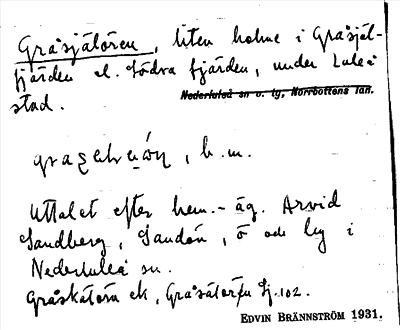 Gråsjälören, liten holme i Gråsjäl-
fjärden el. Södra fjärden, under Luleå
stad.
Nederluleå sn o. tg, Norrbottens län.
h. m.
Uttalet efter hem.-äg. Arvid
Sandberg, Sandön, ö och by i
Nederluleå sn.
Gråskälörn ek, Gråsälören Sj. 102.
EDVIN BRÄNNSTRÖM 1931.